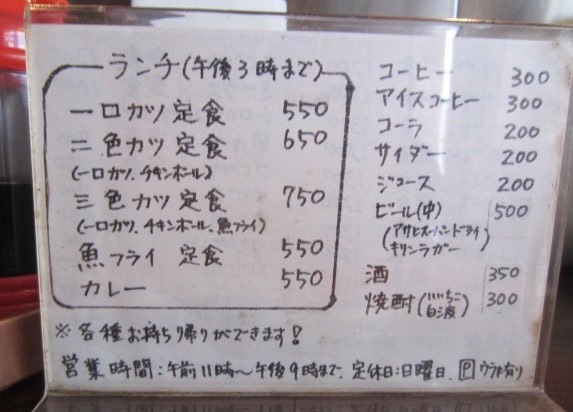 ランチ(午後3時まで)
一口カツ定食 550
二色カツ定食 650
(一口カツ、チキンボール)
三色カツ定食 750
(一口カツ、チキンボール、魚フライ)
魚フライ 定食 550
カレー 550
コーヒー 300
アイスコーヒー 300
コーラ 200
サイダー 200
ジュース 200
ビール(中) 500
(アサヒスーパードライ
キリンラガー)
酒 350
焼酎(いいちこ 白波) 300
※各種お持ち帰りができます!
営業時間:午前11時〜午後9時まで、定休日:日曜日、P ウラに有り